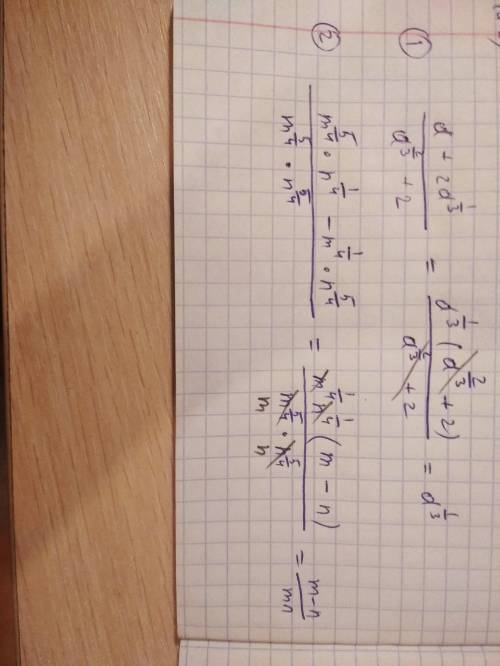 ① (d + 2d^(1/3)) / (d^(2/3) + 2) = d^(1/3) (d^(2/3) + 2) / (d^(2/3) + 2) = d^(1/3)
② (m^(5/4) · n^(1/4) − m^(1/4) · n^(5/4)) / (m^(5/4) · n^(5/4)) = m^(1/4) n^(1/4) (m − n) / (m^(5/4) · n^(5/4)) = (m−n) / mn
m n